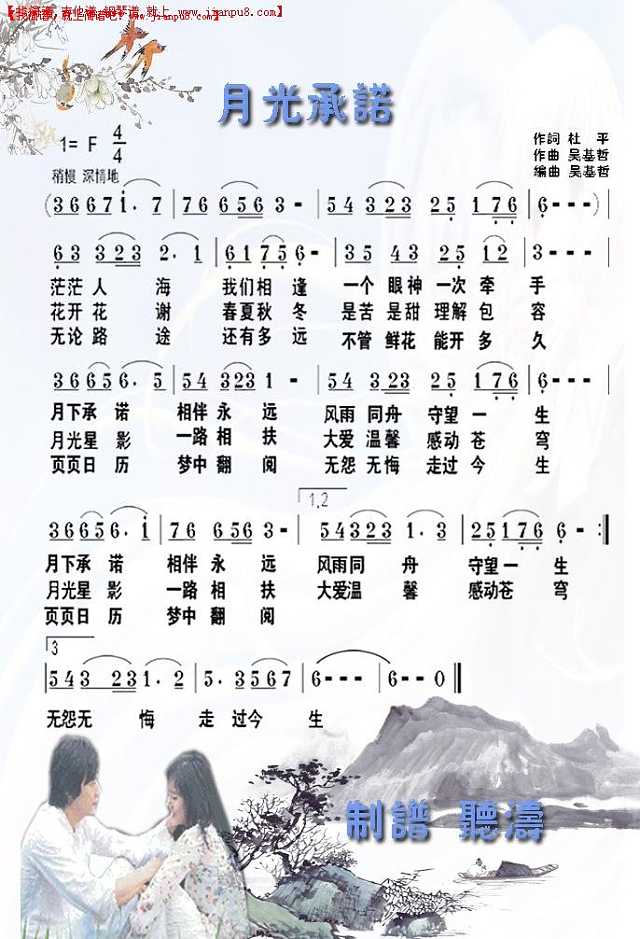 【我简谱, 吉他谱, 钢琴谱, 就上 www.jianpu8.com】
月光承諾
1= F 4/4
稍慢 深情地
作詞 杜 平
作曲 吴基哲
编曲 吴基哲
(36671·7|766563-|5432325176|6---)|
633232·1|61756-|35432512|3---|
茫茫人 海 我们相 逢 一个 眼神一次 牵 手
花开花 谢 春夏秋 冬 是苦 是甜 理解 包 容
无论路 途 还有多 远 不管 鲜花 能开 多 久
366566·5|543231-|5432325176|6---|
月下承 诺 相伴永 远 风雨 同舟 守望 一 生
月光星 影 一路相 扶 大爱 温馨 感动 苍 穹
页页日 历 梦中翻 阅 无怨 无悔 走过 今 生
1,2
366566·1|766563-|543231·3|25176 6-:|
月下承 诺 相伴 永 远 风雨同 舟 守望一 生
月光星 影 一路 相 扶 大爱温 馨 感动苍 穹
页页日 历 梦中 翻 阅
3
543231·2|5·3567|6---|6--0||
无怨无 悔 走 过今 生
制譜 聽濤